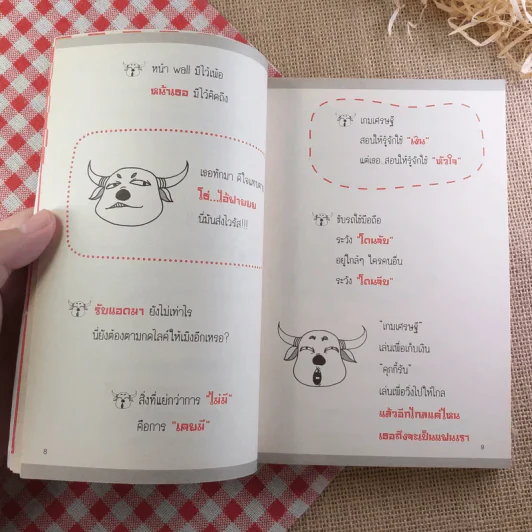 หน้า wall มีไว้เพ้อ
หน้าเธอ มีไว้คิดถึง
เธอทักมา ดีใจแทบตาย
โธ่...ไอ้ฟายยยย
นี่มันส่งไวรัส!!!
รับแอดมา ยังไม่เท่าไร
นี่ยังต้องตามกดไลค์ให้เมิงอีกเหรอ?
สิ่งที่แย่กว่าการ "ไม่มี"
คือการ "เคยมี"
8
เกมเศรษฐี
สอนให้รู้จักใช้ "เงิน"
แต่เธอ สอนให้รู้จักใช้ "หัวใจ"
ขับรถใช้มือถือ
ระวัง "โดนจับ"
อยู่ใกล้ๆ ใครคนอื่น
ระวัง "โดนจับ"
"เกมเศรษฐี"
เล่นเพื่อเก็บเงิน
"คุกกี้รัน"
เล่นเพื่อวิ่งไปให้ไกล
แล้วอีกไกลแค่ไหน
เธอถึงจะเป็นแฟนเรา
9